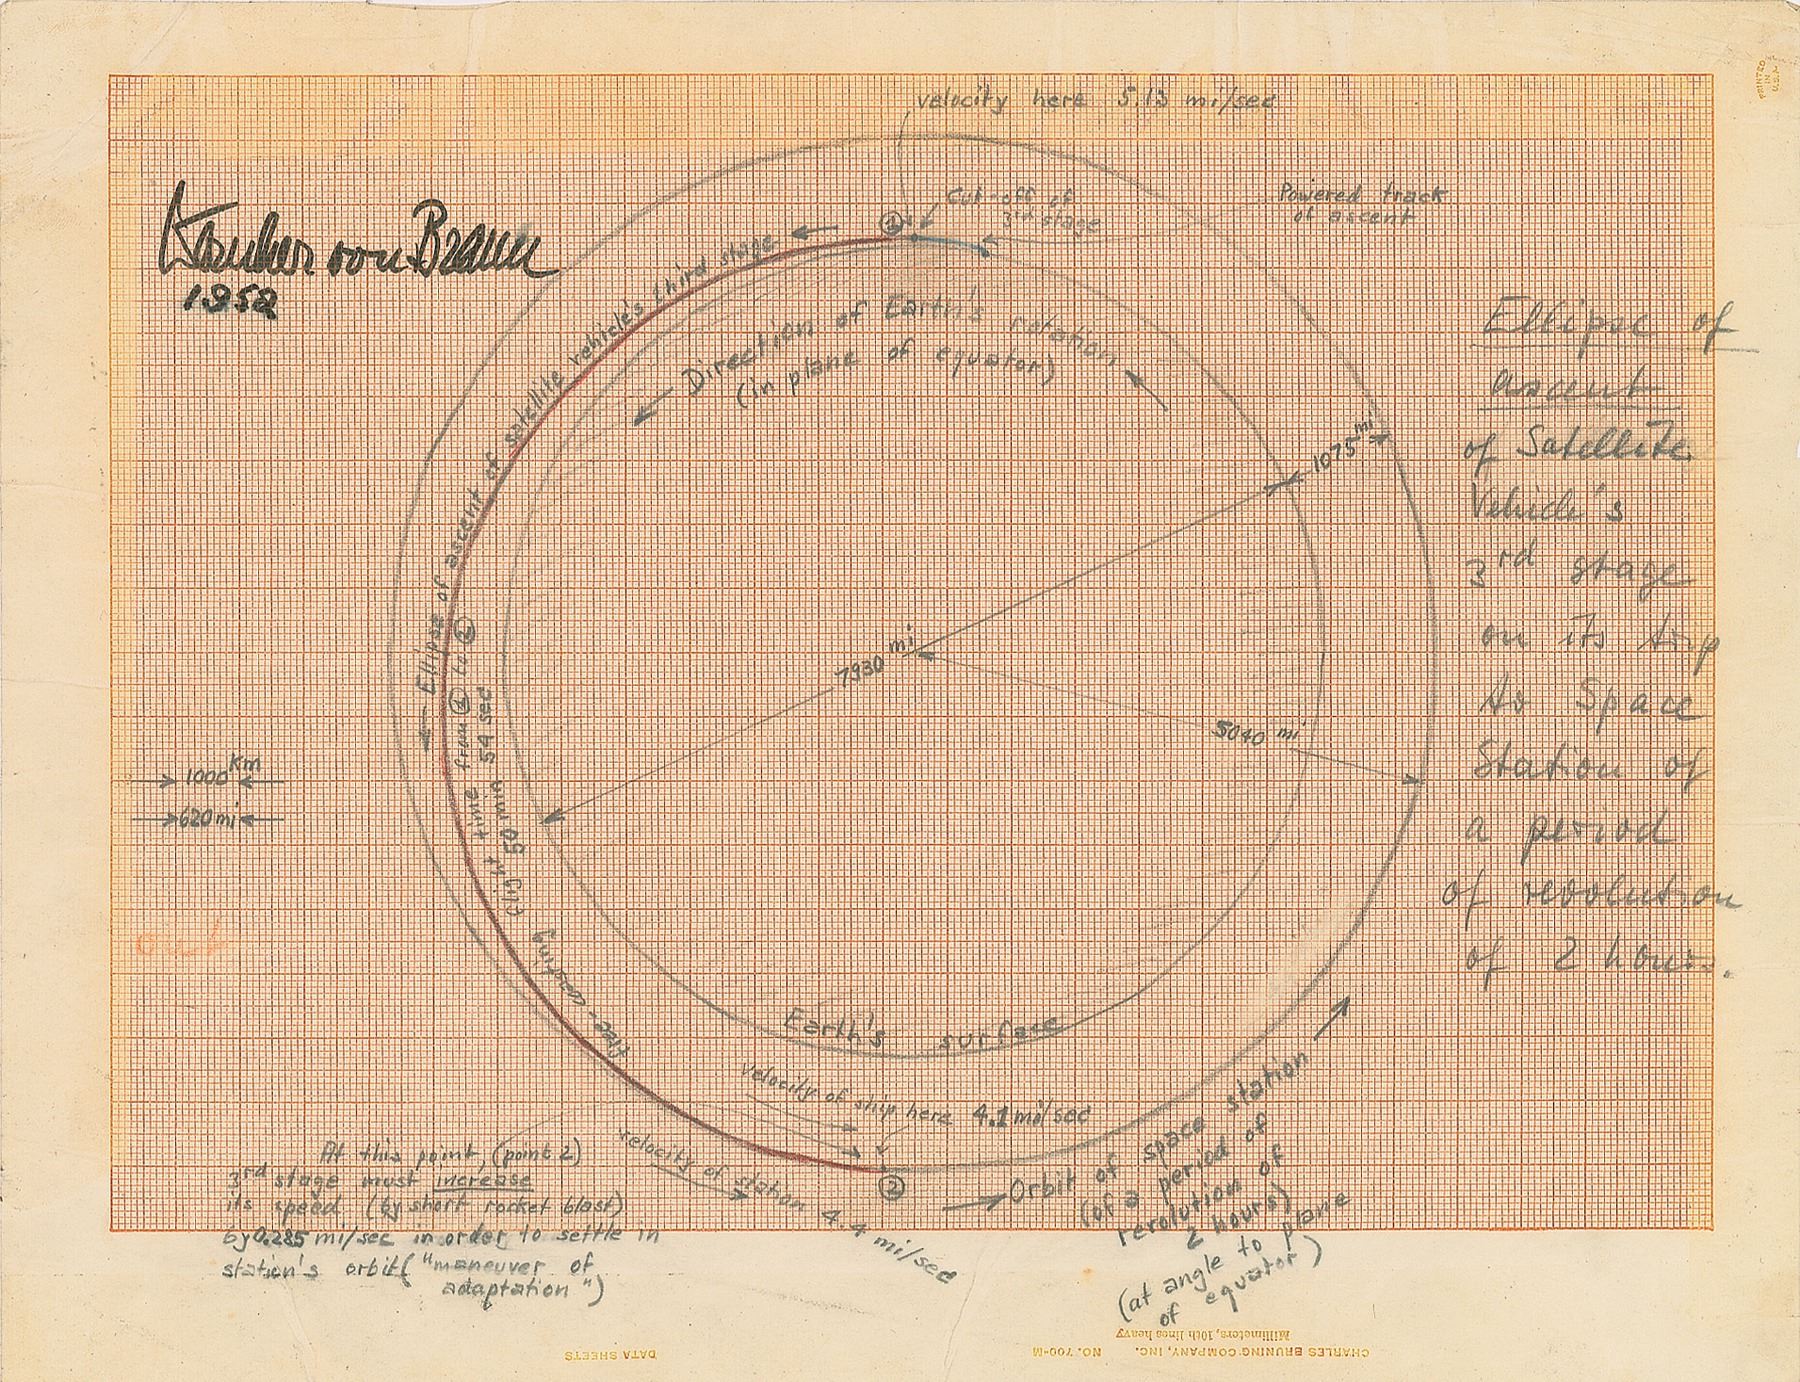 PRINTED
IN
U.S.A.
velocity here 5.13 mi/sec
Cut-off of
3rd stage
Powered track
of ascent
①
Wernher von Braun
1952
Direction of Earth's rotation
(in plane of equator)
Ellipse of ascent of satellite vehicle's third stage
(flight time from ① to ②
50 min 54 sec
free-coasting
1075 mi
7930 mi
5040 mi
1000 km
620 mi
out
Ellipse of
ascent
of Satellite
Vehicle's
3rd stage
on its trip
to Space
Station of
a period
of revolution
of 2 hours.
Earth's surface
velocity of ship here 4.1 mi/sec
velocity of station 4.4 mi/sec
②
At this point, (point 2)
3rd stage must increase
its speed (by short rocket blast)
by 0.285 mi/sec in order to settle in
station's orbit ("maneuver of
adaptation")
Orbit of space station
(of a period of
revolution of
2 hours)
(at angle to plane
of equator)
Millimeters, 10th lines heavy
CHARLES BRUNING COMPANY, INC. NO. 700-M
DATA SHEETS